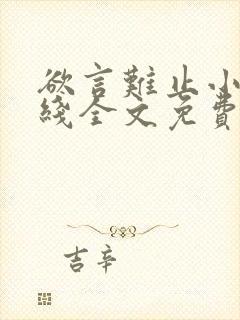 欲言難止小
綫全文免費
吉辛